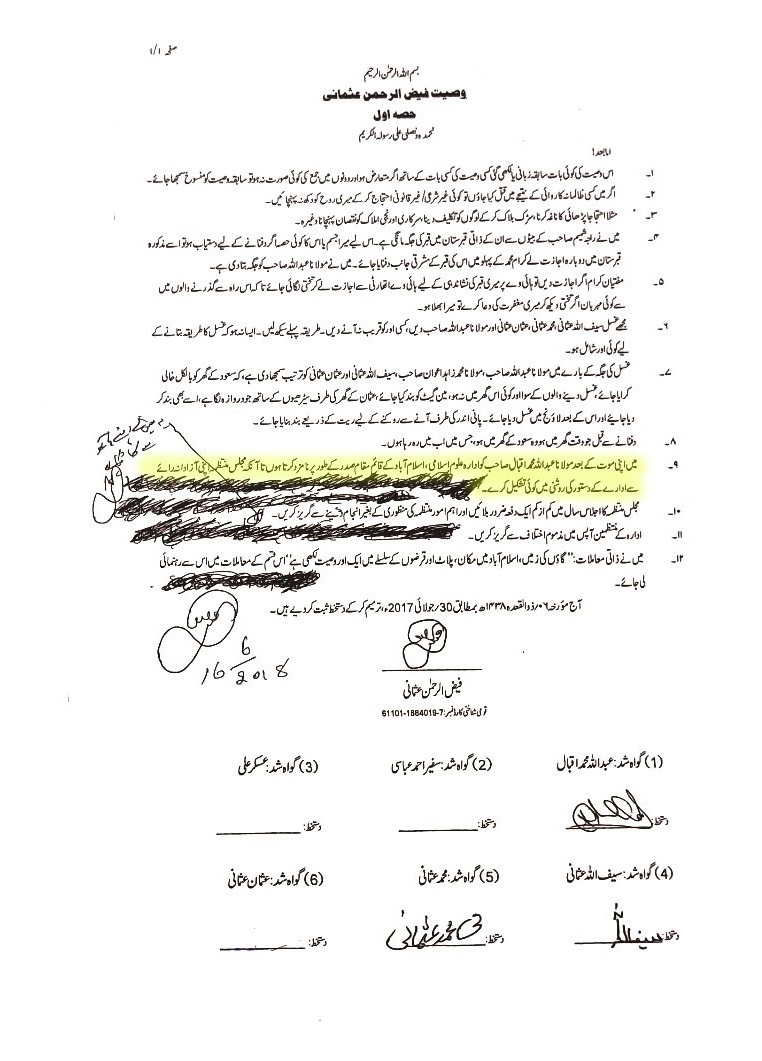 صفحہ ۱/۱
بسم اللہ الرحمٰن الرحیم
وصیت فیض الرحمن عثمانی
حصہ اول
نحمدہ ونصلی علی رسولہ الکریم
امابعد!
۱۔ اس وصیت کی کوئی بات سابقہ زبانی یا لکھی گئی کسی وصیت کی کسی بات کے ساتھ اگر متعارض ہو اور دونوں میں جمع کی کوئی صورت نہ ہو تو سابقہ وصیت کو منسوخ سمجھا جائے۔
۲۔ اگر میں کسی ظالمانہ کاروائی کے نتیجے میں قتل کیا جاؤں تو کوئی غیر شرعی/غیر قانونی احتجاج کر کے میری روح کو دکھ نہ پہنچائیں۔
۳۔ مثلاً احتجاجاً پڑھائی کا ناغہ کرنا، سڑک بلاک کر کے لوگوں کو تکلیف دینا، سرکاری اور نجی املاک کو نقصان پہنچانا وغیرہ۔
۴۔ میں نے راجہ شمیم صاحب کے بیٹوں سے ان کے ذاتی قبرستان میں قبر کی جگہ مانگی ہے۔ اس لیے میرا جسم یا اس کا کوئی حصہ اگر دفنانے کے لیے دستیاب ہو تو اسے مذکورہ
قبرستان میں دوبارہ اجازت لے کر امام محمد کے پہلو میں اس کی قبر کے مشرقی جانب دفنایا جائے۔ میں نے مولانا عبداللہ صاحب کو جگہ بتا دی ہے۔
۵۔ مفتیان کرام اگر اجازت دیں تو ہائی وے پر میری قبر کی نشاندہی کے لیے ہائی وے اتھارٹی سے اجازت لے کر تختی لگائی جائے تاکہ اس راہ سے گذرنے والوں میں
سے کوئی مہربان اگر تختی دیکھ کر میری مغفرت کی دعا کرے تو میرا بھلا ہو۔
۶۔ مجھے غسل سیف اللہ عثمانی، محمد عثمانی، عثمان عثمانی اور مولانا عبداللہ صاحب دیں، کسی اور کو قریب نہ آنے دیں۔ طریقہ پہلے سیکھ لیں۔ ایسا نہ ہو کہ غسل کا طریقہ بتانے کے
لیے کوئی اور شامل ہو۔
۷۔ غسل کی جگہ کے بارے میں مولانا عبداللہ صاحب، مولانا محمد زاہد اعوان صاحب، سیف اللہ عثمانی اور عثمان عثمانی کو ترتیب سمجھا دی ہے، کہ سعود کے گھر کو بالکل خالی
کرایا جائے، غسل دینے والوں کے سوا اور کوئی اس گھر میں نہ ہو، مین گیٹ کو بند کیا جائے، عثمان کے گھر کی طرف سیڑھیوں کے ساتھ جو دروازہ لگا ہے، اسے بھی بند کر
دیا جائے اور اس کے بعد لاؤنج میں غسل دیا جائے۔ پانی اندر کی طرف آنے سے روکنے کے لیے ریت کے ذریعے بند بنایا جائے۔
۸۔ دفنانے سے قبل جو وقت گھر میں ہو وہ سعود کے گھر میں ہو، جس میں اب میں رہ رہا ہوں۔
۹۔ میں اپنی موت کے بعد مولانا عبداللہ محمد اقبال صاحب کو ادارہ علوم اسلامی، اسلام آباد کے قائم مقام صدر کے طور پر نامزد کرتا ہوں تا آنکہ مجلس منتظمہ اپنی آزادانہ رائے
سے ادارے کے دستور کی روشنی میں کوئی تشکیل کرے۔
۱۰۔ مجلس منتظمہ کا اجلاس سال میں کم از کم ایک دفعہ ضرور بلائیں اور اہم امور منتظمہ کی منظوری کے بغیر انجام دینے سے گریز کریں۔
۱۱۔ ادارہ کے منتظمین آپس میں مذموم اختلاف سے گریز کریں۔
۱۲۔ میں نے ذاتی معاملات: "گاؤں کی زمین، اسلام آباد میں مکان، پلاٹ اور قرضوں کے سلسلے میں ایک اور وصیت لکھی ہے" اس قسم کے معاملات میں اس سے رہنمائی
لی جائے۔
آج مؤرخہ ۰۶/ذوالقعدہ ۱۴۳۸ھ بمطابق 30/جولائی 2017ء، ترمیم کر کے دستخط ثبت کر دیے ہیں۔
16 6 2018
فیض الرحمٰن عثمانی
قومی شناختی کارڈ نمبر: 7-1884019-61101
(1) گواہ شد: عبداللہ محمد اقبال (2) گواہ شد: سفیر احمد عباسی (3) گواہ شد: عسکر علی
دستخط: دستخط: دستخط:
(4) گواہ شد: سیف اللہ عثمانی (5) گواہ شد: محمد عثمانی (6) گواہ شد: عثمان عثمانی
دستخط: سیف اللہ دستخط: محمد عثمانی دستخط: